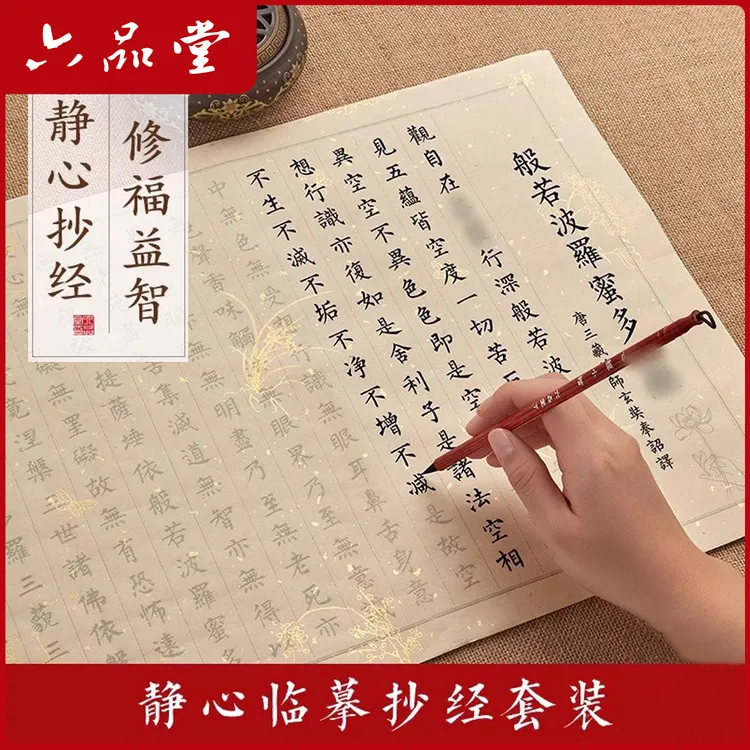 六品堂
修福益智
静心抄经
般若波羅蜜多
唐三藏
師玄奘奉詔譯
觀自在
行深般若波
見五蘊皆空度一切苦
異空空不異色色即是空
想行識亦復如是舍利子是諸法空相
不生不滅不垢不净不增不減是故空
中無色無受想行識無眼耳鼻舌身意
色聲香味觸
無眼界乃至無
無明盡乃至無老死亦
集滅道無智亦無得
提薩埵依般若波羅蜜多
罣礙故無有恐怖遠
竟涅槃三世諸佛依般
羅三藐三
静心临摹抄经套装